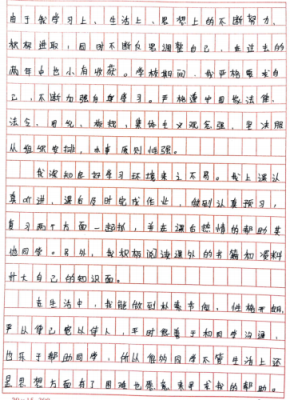 由于我学习上、生活上、思想上的不断努力、
积极进取，同时不断反思调整自己，在过去的
两年中也小有收获。学校期间，我严格要求自
己，不断加强自身学习。严格遵守国家法律、
法令、团纪、校规，集体主义观念强，坚决服
从组织安排，办事原则性强。
我深知良好学习环境来之不易。我上课认
真听讲，课后及时完成作业，做到认真预习，
复习两个方面一起抓，并在课后热情的帮助其
他同学。另外，我积极阅读课外的书籍和资料
扩大自己的知识面。
在生活中，我能做到朴素节俭，性格开朗，
严以律己宽以待人，平时我善于和同学沟通，
也乐于帮助同学，所以有的同学不管生活上还
是思想方面有了困难也愿意来寻求我的帮助。